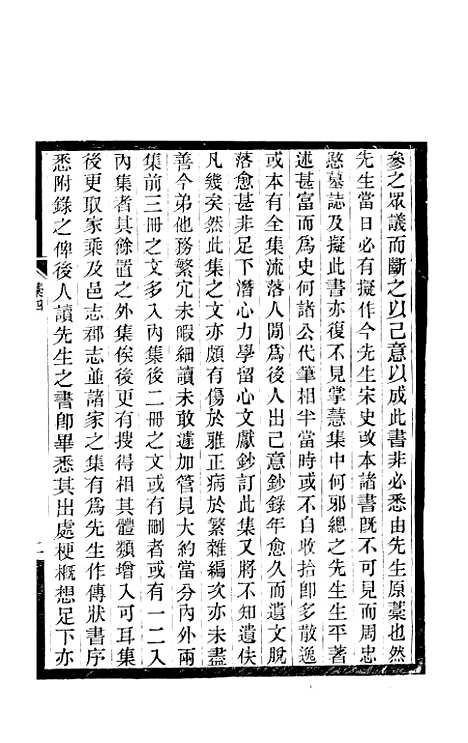 參之眾議而斷之以己意以成此書非必悉由先生原藁也然
先生當日必有擬作今先生宋史改本諸書旣不可見而周忠
愍墓誌及擬此書亦復不見掌慧集中何邪總之先生生平著
述甚富而為史何諸公代筆相半當時或不自收拾卽多散逸
或本有全集流落人閒為後人出己意鈔錄年愈久而遺文脫
落愈甚非足下潛心力學留心文獻鈔訂此集又將不知遺佚
凡幾矣然此集之文亦頗有傷於雅正病於繁雜編次亦未盡
善今弟他務繁冗未暇細讀未敢遽加管見大約當分內外兩
集前三冊之文多入內集後二冊之文或有刪者或有一二入
內集者其餘置之外集俟後更有搜得相其體類增入可耳集
後更取家乘及邑志郡志並諸家之集有為先生作傳狀書序
悉附錄之俾後人讀先生之書卽畢悉其出處梗概想足下亦
集四